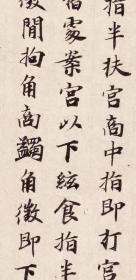 指半扶宫商中指即打宫
指處案宫以下絃食指半
徵間拘角商蠲角徵即下